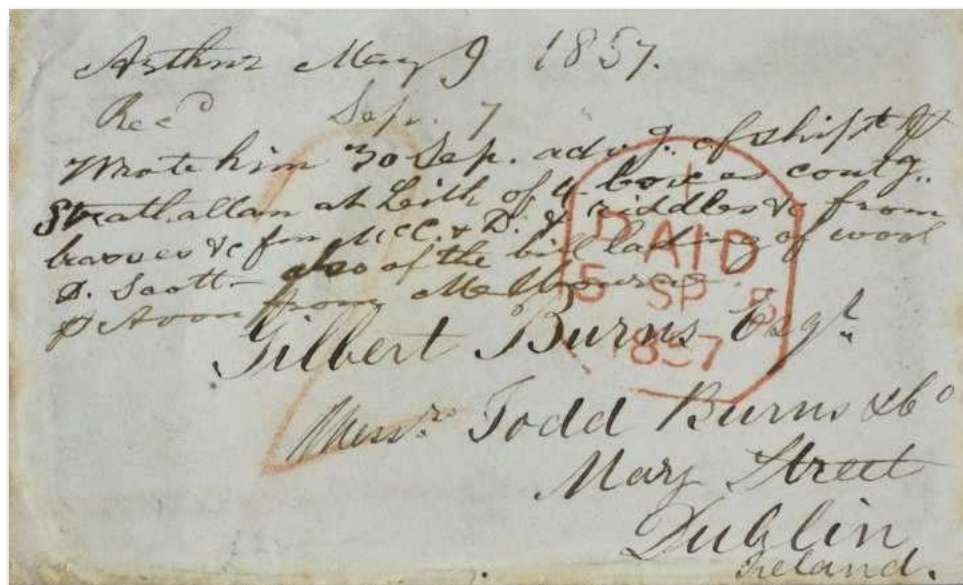 Arthur May 9 1857.
Recd Sep. 7
Wrote him 30 Sep. advg. of shipt p
Strathallan at Leith of 4 boxes contg..
basses &c fm McC. & D. & riddles &c from
D. Scott - also of the bill lading of wool
p Avon from Melbourne
PAID
5 SP 5
1857
Gilbert Burns Esqr.
Messrs. Todd Burns & Co
Mary Street
Dublin
Ireland.
2